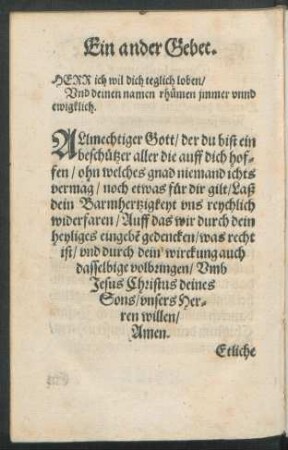 Ein ander Gebet.
HERR ich wil dich teglich loben/
Vnd deinen namen rhümen jmmer vnnd
ewigklich.
ALlmechtiger Gott/ der du bist ein
beschützer aller die auff dich hof-
fen/ ohn welches gnad niemand ichts
vermag/ noch etwas für dir gilt/ Laß
dein Barmhertzigkeyt vns reychlich
widerfaren/ Auff das wir durch dein
heyliges eingebẽ gedencken/ was recht
ist/ vnd durch dein wirckung auch
dasselbige volbringen/ Vmb
Jesus Christus deines
Sons/ vnsers Her-
ren willen/
Amen.
Etliche